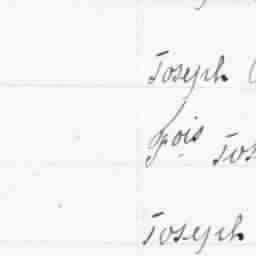 Joseph
Fois Jos
Joseph